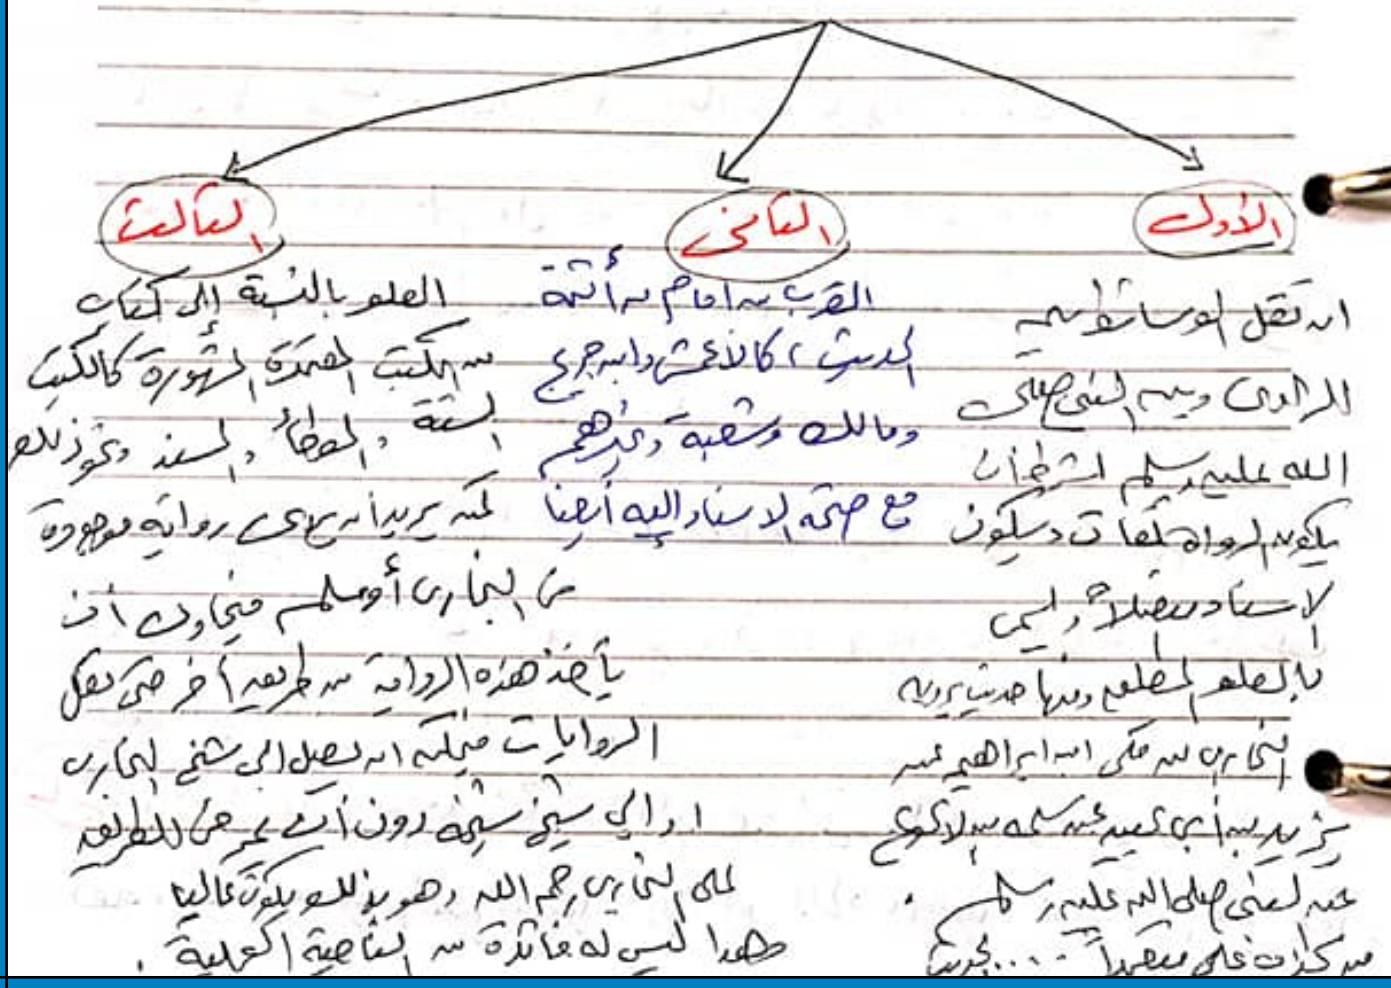 الأول
ان تقل الوسائط بين
الراوي وبين النبي صلى
الله عليه وسلم بشرط أن
يكون الرواة ثقات ويكون
الاسناد متصلاً ويسمى
بالعلو المطلق ومنها حديث يرويه
البخاري عن مكي ابن ابراهيم عن
يزيد بن أبي عبيد عن سلمه بن الاكوع
عن النبي صلى الله عليه وسلم .
من كذب علي متعمداً .... الحديث
الثاني
القرب من امام من أئمة
الحديث ، كالأعمش وابن جريج
ومالك وشعبة وغيرهم
مع صحة الاسناد إليه أيضا
الثالث
العلو بالنسبة إلى كتاب
من الكتب المعتمدة المشهورة كالكتب
الستة والموطأ والمسند ونحو ذلك
كمن يريد أن يروي رواية موجودة
في البخاري أو مسلم فيحاول أن
يأخذ هذه الرواية من طريق آخر حتى تقل
الروايات فيمكنه ان يصل الى شيخ البخاري
او الى شيخ شيخه دون أن يمر في الطريق
على البخاري رحمه الله وهو بذلك يكون عاليا
وهذا ليس له فائدة من الناحية العملية .